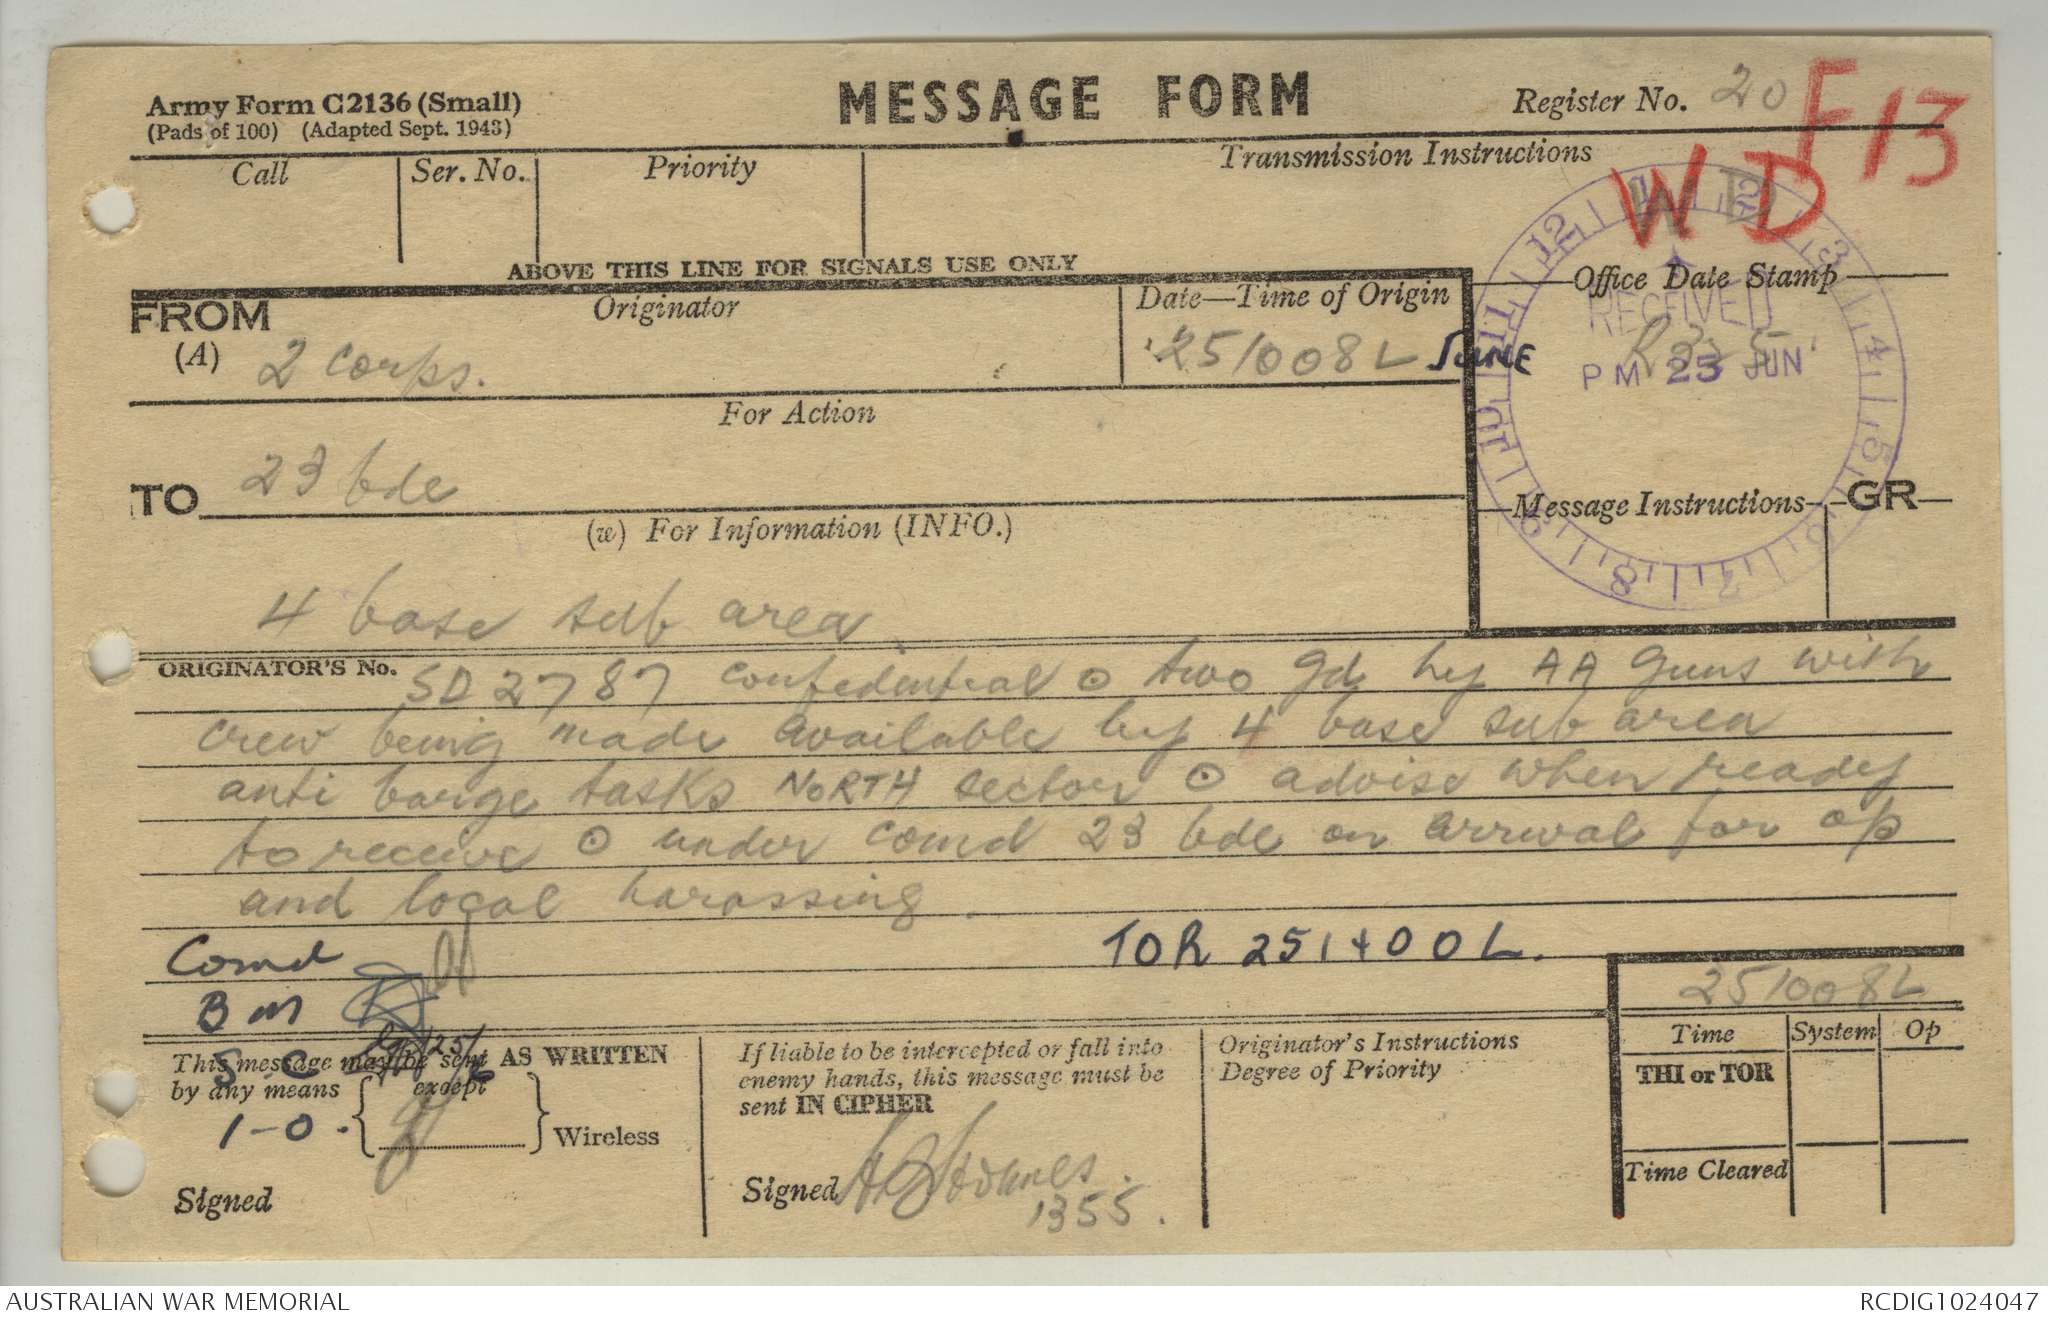 Army Form C2136 (Small)
(Pads of 100) (Adapted Sept. 1943)
MESSAGE FORM
Register No. 20
F13
WD
Call
Ser. No.
Priority
Transmission Instructions
ABOVE THIS LINE FOR SIGNALS USE ONLY
FROM
(A)
Originator
2 corps.
Date—Time of Origin
251008L JUNE
Office Date Stamp
RECEIVED
PM 25 JUN
12 1 2 3 4 5 6 7 8 9 10 11
For Action
TO 23 bde
(w) For Information (INFO.)
4 base sub area
Message Instructions
GR
ORIGINATOR'S No. SD2787 confidential ⊙ two gd hy AA guns with
crew being made available by 4 base sub area
anti barge tasks NORTH sector ⊙ advise when ready
to receive ⊙ under comd 23 bde on arrival for op
and local harassing.
Comd
TOR 251400L.
BM
251008L
S.C.
25/6
1-0.
This message may be sent AS WRITTEN
by any means except
Wireless
Signed
If liable to be intercepted or fall into
enemy hands, this message must be
sent IN CIPHER
Signed
1355.
Originator's Instructions
Degree of Priority
Time
System
Op
THI or TOR
Time Cleared
AUSTRALIAN WAR MEMORIAL
RCDIG1024047